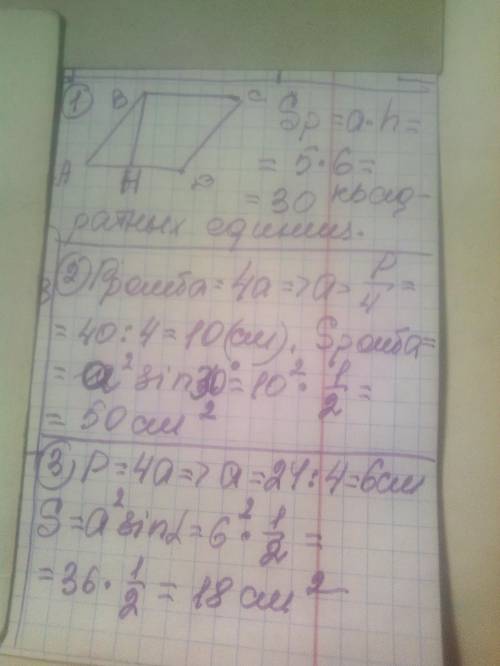 1 B C Sр = a·h =
A H D = 5·6 =
= 30 квад-
ратных единиц.
2 Pромба = 4a => a = P/4 =
= 40 : 4 = 10 (см). Sромба =
= a² sin30° = 10² · 1/2 =
= 50 см²
3 P = 4a => a = 24 : 4 = 6 см
S = a² sinα = 6² · 1/2 =
= 36 · 1/2 = 18 см²